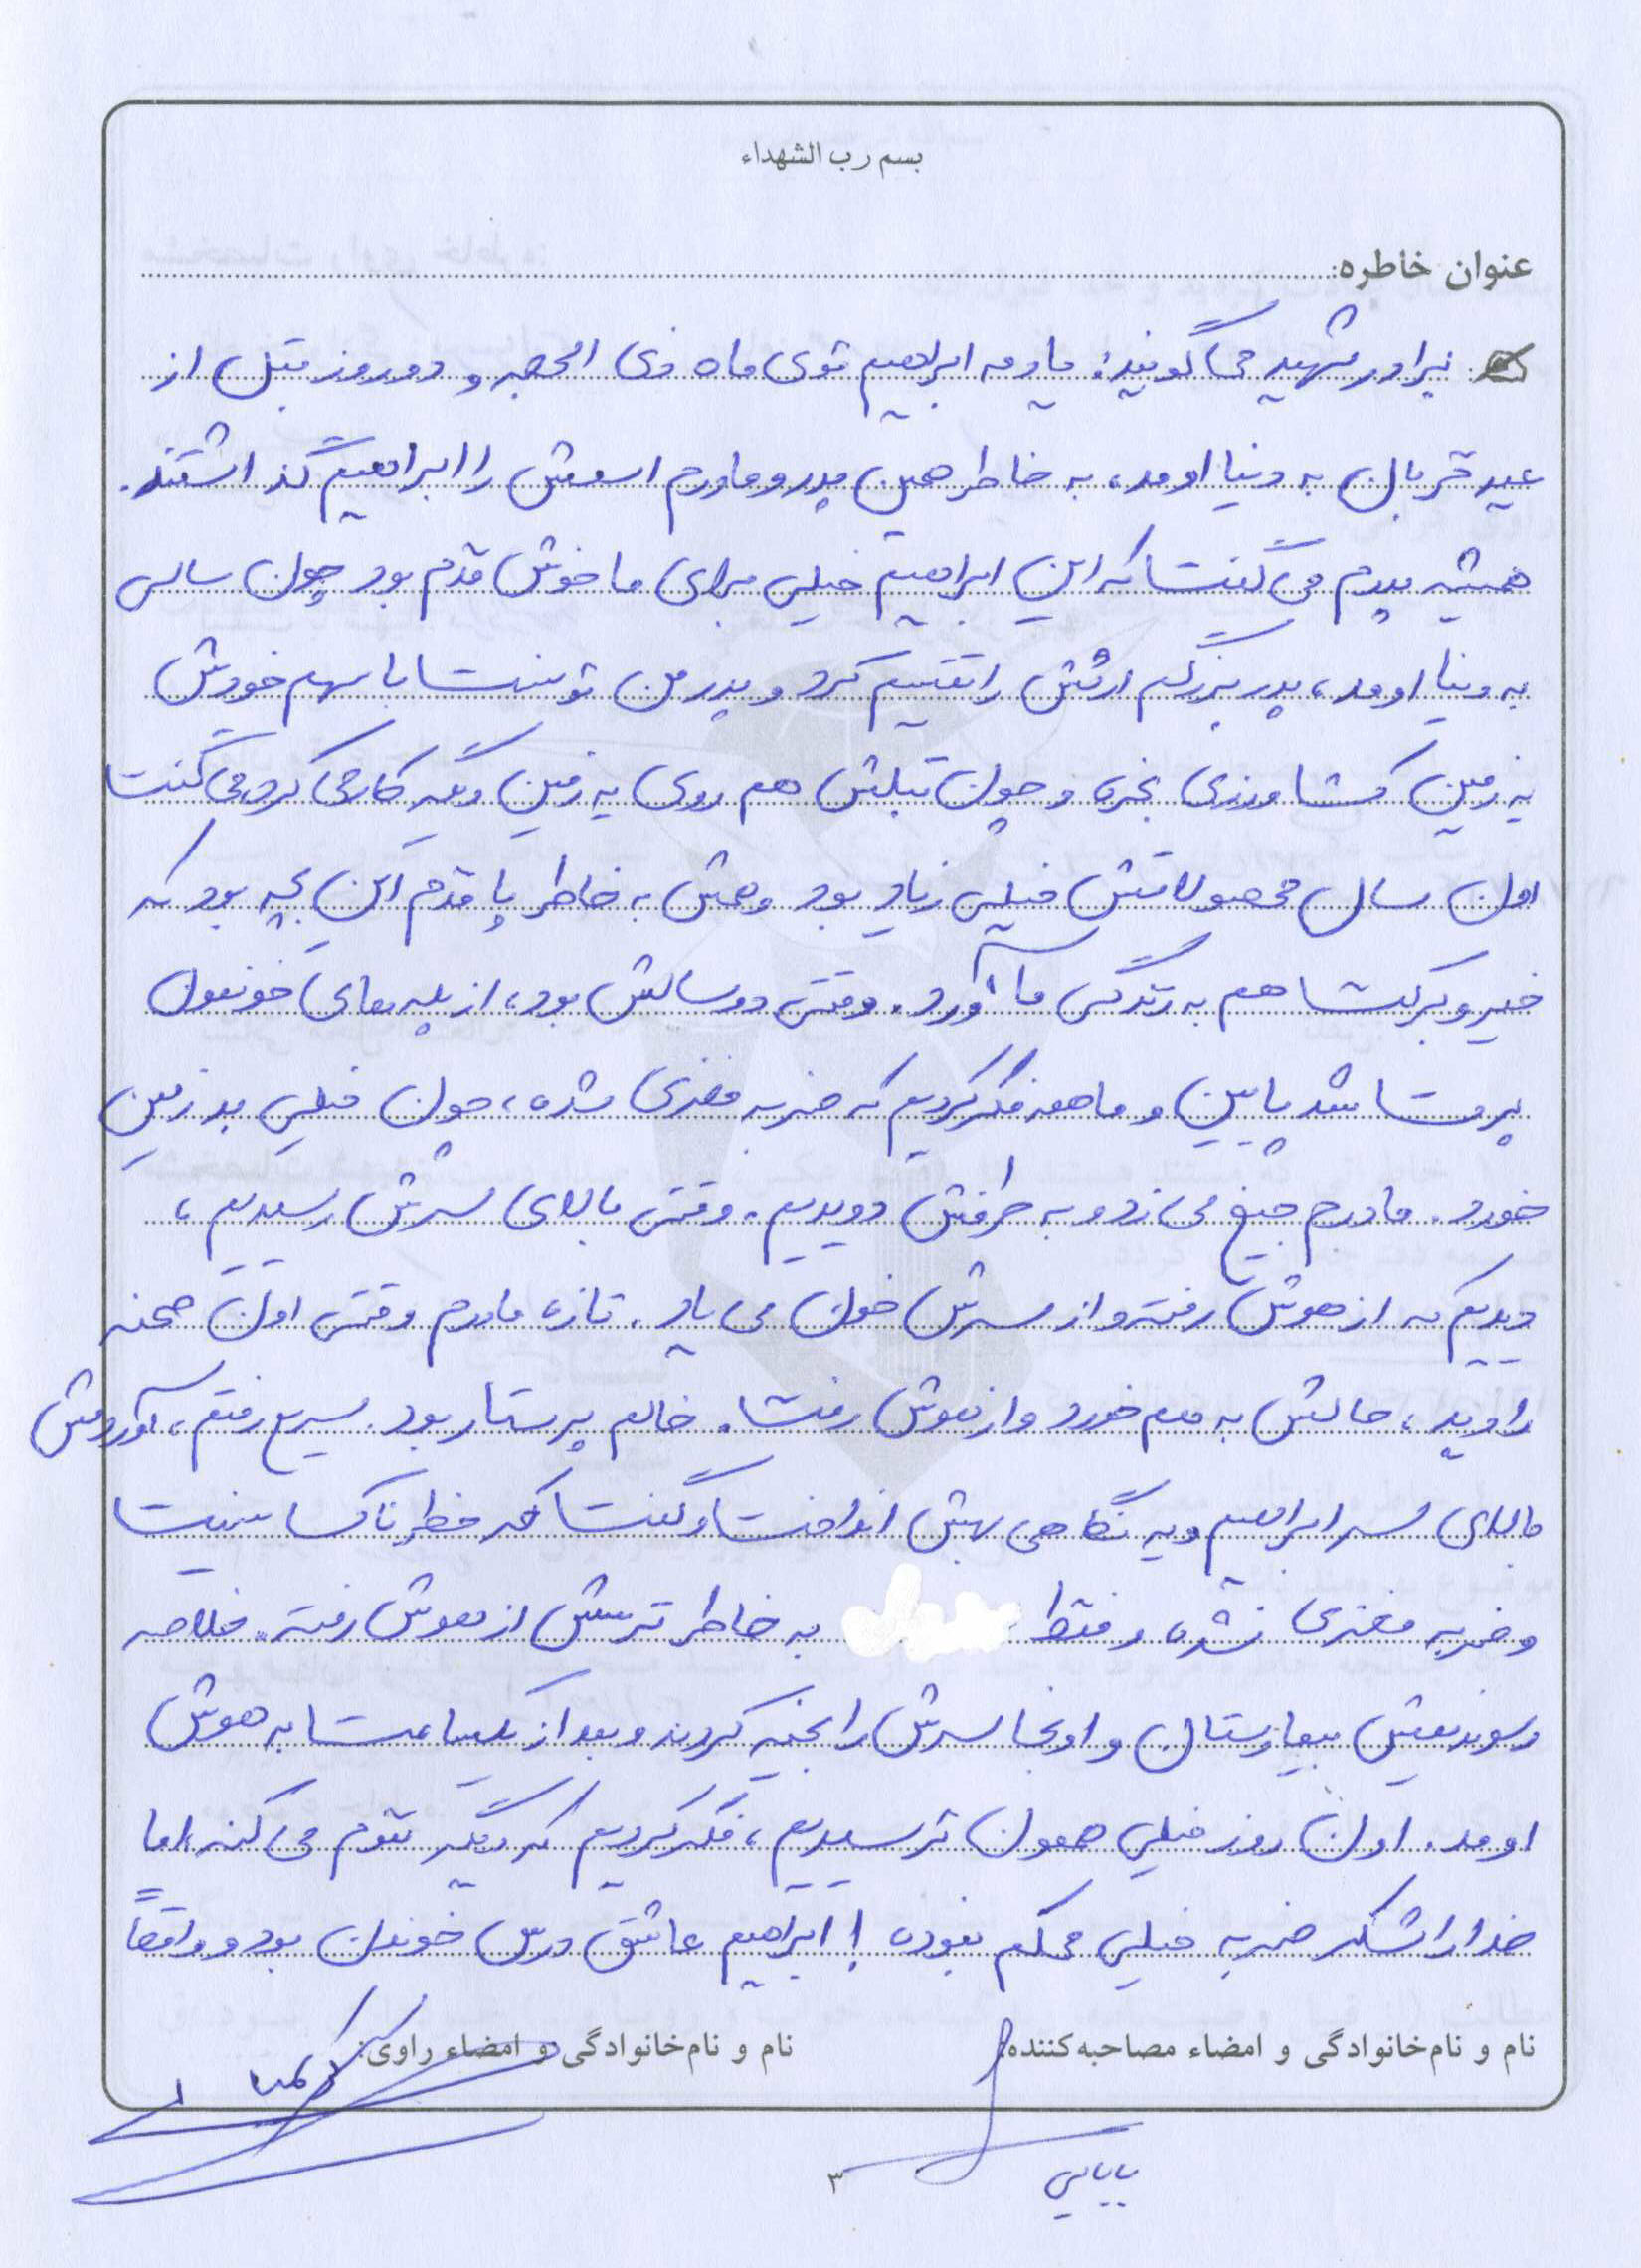 بسم رب الشهداء
عنوان خاطره:
برادر شهید می گویند: یادمه ابراهیم توی ماه ذی الحجه و دو روز قبل از
عید قربان به دنیا اومد، به خاطر همین پدر و مادرم اسمش را ابراهیم گذاشتند.
همیشه پدرم می گفت که این ابراهیم خیلی برای ما خوش قدم بود چون سالی
به دنیا اومد، پدربزرگم ارثش را تقسیم کرد و پدر من تونست با سهم خودش
یه زمین کشاورزی بخره و چون قبلش هم روی یه زمین دیگه کار می کرد می گفت
اون سال محصولاتش خیلی زیاد بود و همش به خاطر پا قدم این بچه بود که
خیر و برکت هم به زندگی ما آورد. وقتی دو سالش بود، از پله های خونمون
پرت شد پایین و ما همه فکر کردیم که ضربه مغزی شده، چون خیلی بد زمین
خورد. مادرم جیغ می زد و به طرفش دویدیم. وقتی بالای سرش رسیدیم،
دیدیم که از هوش رفته و از سرش خون می یاد. تازه مادرم وقتی اون صحنه
را دید، حالش به هم خورد و از هوش رفت. خالم پرستار بود. سریع رفتم، آوردمش
بالای سر ابراهیم و یه نگاهی بهش انداخت و گفت که خطرناک نیست
و ضربه مغزی نشده و فقط به خاطر ترسش از هوش رفته. خلاصه
رسوندیمش بیمارستان و اونجا سرش را بخیه کردند و بعد از یکساعت به هوش
اومد. اون روز خیلی هممون ترسیدیم، فکر کردیم که دیگه تموم می کنه، اما
خدا را شکر ضربه خیلی محکم نبوده! ابراهیم عاشق درس خوندن بود و واقعاً
نام و نام خانوادگی و امضاء مصاحبه کننده:
نام و نام خانوادگی و امضاء راوی:
بابایی
۳